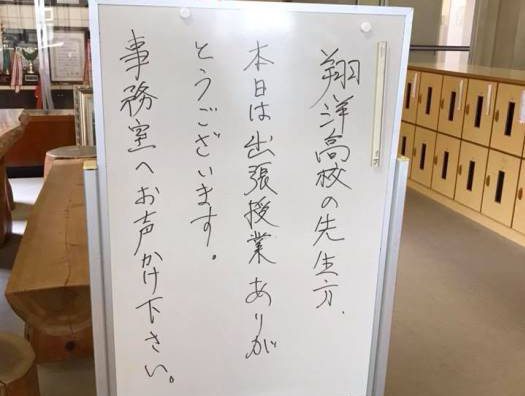 翔洋高校の先生方、
本日は出張授業ありが
とうございます。
事務室へお声かけ下さい。